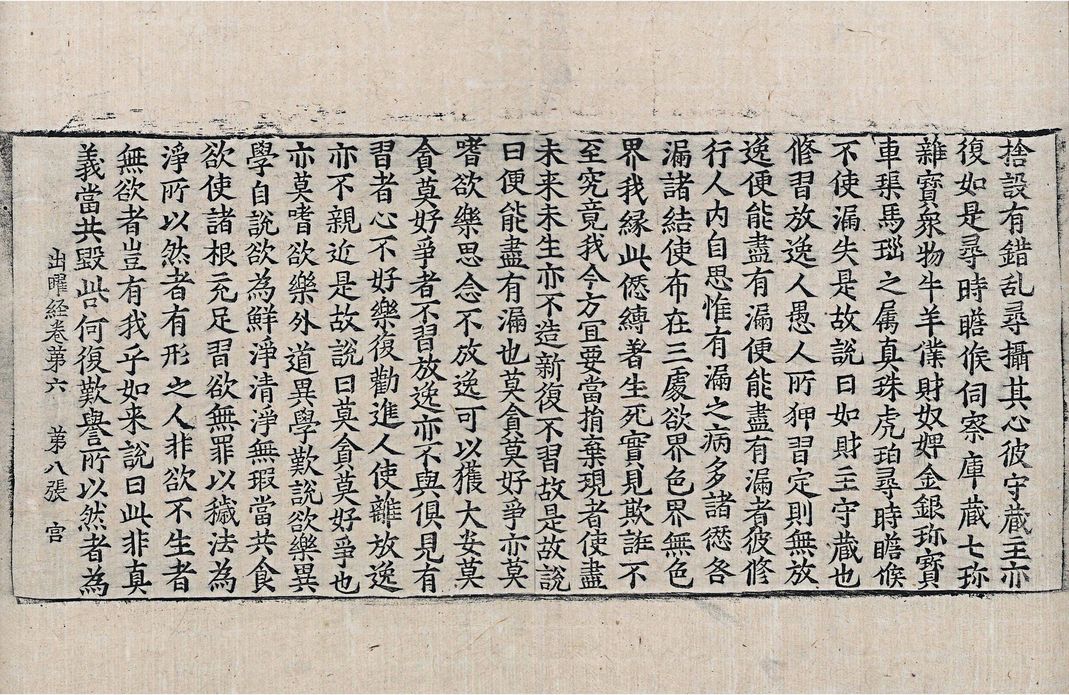 捨設有錯乱尋攝其心彼守蔵主亦
復如是尋時瞻候伺察庫蔵七珎
雜寶衆物牛羊僕財奴婢金銀珎寶
車璖馬瑙之属真珠虎珀尋時瞻候
不使漏失是故說曰如財主守蔵也
修習放逸人愚人所狎習定則無放
逸便能盡有漏便能盡有漏者彼修
行人内自思惟有漏之病多諸𠎝各
漏諸結使布在三處欲界色界無色
界我縁此𠎝縛著生死實見欺誑不
至究竟我今方冝要當捐棄現者使盡
未来未生亦不造新復不習故是故說
曰便能盡有漏也莫貪莫好爭亦莫
嗜欲樂思念不放逸可以獲大安莫
貪莫好爭者不習放逸亦不與俱見有
習者心不好樂復勸進人使離放逸
亦不親近是故說曰莫貪莫好爭也
亦莫嗜欲樂外道異學歎說欲樂異
學自說欲為鮮淨清淨無瑕當共食
欲使諸根充足習欲無罪以穢法為
淨所以然者有形之人非欲不生者
無欲者豈有我乎如来說曰此非真
義當共毀呰何復歎譽所以然者為
出曜経卷第六 第八張 官